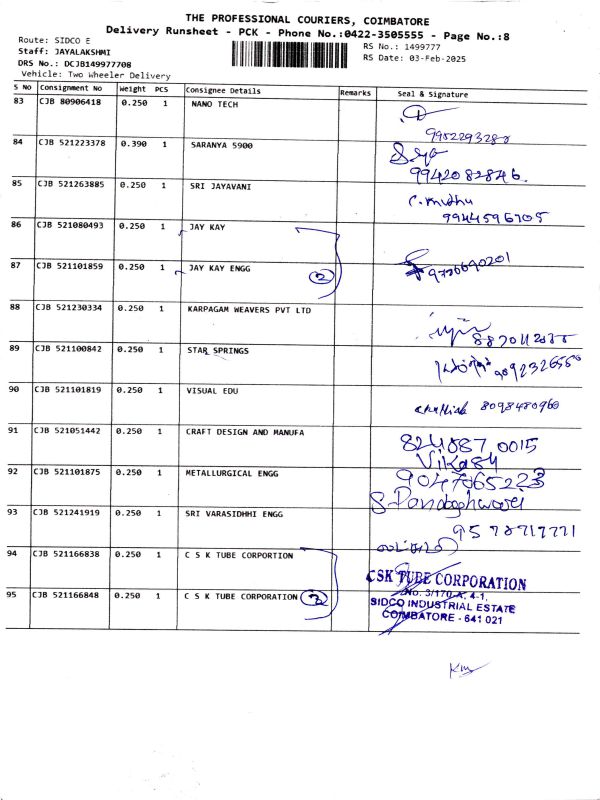 THE PROFESSIONAL COURIERS, COIMBATORE
Delivery Runsheet - PCK - Phone No.:0422-3505555 - Page No.:8
Route: SIDCO E
RS No.: 1499777
Staff: JAYALAKSHMI
RS Date: 03-Feb-2025
DRS No.: DCJB149977708
Vehicle: Two Wheeler Delivery
S No Consignment No Weight PCS Consignee Details Remarks Seal & Signature
83 CJB 80906418 0.250 1 NANO TECH
84 CJB 521223378 0.390 1 SARANYA 5900
9942082846.
85 CJB 521263885 0.250 1 SRI JAYAVANI
C. Muthu
9944596705
86 CJB 521080493 0.250 1 JAY KAY
87 CJB 521101859 0.250 1 JAY KAY ENGG 2
9786690201
88 CJB 521230334 0.250 1 KARPAGAM WEAVERS PVT LTD
89 CJB 521100842 0.250 1 STAR SPRINGS
90 CJB 521101819 0.250 1 VISUAL EDU
8098480960
91 CJB 521051442 0.250 1 CRAFT DESIGN AND MANUFA
824887 0015
92 CJB 521101875 0.250 1 METALLURGICAL ENGG
9047065223
93 CJB 521241919 0.250 1 SRI VARASIDHHI ENGG
94 CJB 521166838 0.250 1 C S K TUBE CORPORTION
95 CJB 521166848 0.250 1 C S K TUBE CORPORATION 2
CSK TUBE CORPORATION
No. 3/170-A, 4-1,
SIDCO INDUSTRIAL ESTATE
COIMBATORE - 641 021